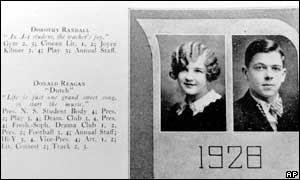 DOROTHY RANDALL
"An A-1 student, the teacher's joy."
Gym 2, 3; Cicean Lit. 1, 2; Joyce
Kilmer 3, 4; Play 3; Annual Staff.
DONALD REAGAN
"Dutch"
"Life is just one grand sweet song,
so start the music."
Pres. N. S. Student Body 4; Pres.
2; Play 3, 4; Dram. Club 3, 4, Pres.
4; Fresh.-Soph. Drama Club 1, 2,
Pres. 2; Football 3, 4; Annual Staff;
Hi-Y 3, 4, Vice-Pres. 4; Art. 1, 2;
Lit. Contest 2; Track 2, 3.
1928
AP